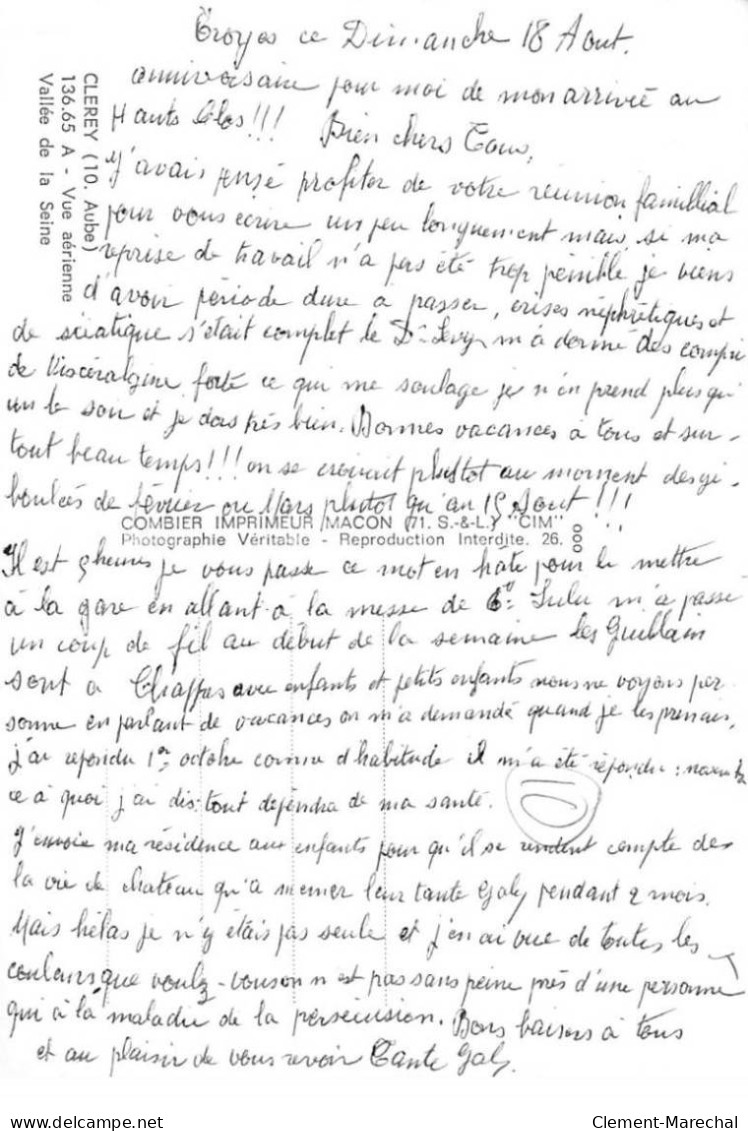 Troyes ce Dimanche 18 Aout.
anniversaire pour moi de mon arrivée au
Hauts Clos!!! Bien chers Tous,
J'avais pensé profiter de votre reunion famillial
pour vous ecrire un peu longuement mais, si ma
reprise de travail n'a pas été trop pénible je viens
d'avoir période dure a passer, crises néphrétiques et
de sciatique s'était complet le Dr Levy m'a donné des compri
de Viscéralgine forte ce qui me soulage je n'en prend plus qu'
un le soir et je dors très bien. Bonnes vacances à tous et sur-
tout beau temps!!! on se croirait plustot au moment des gi-
boulées de février ou Mars plutot qu'au 15 Aout!!!
CLEREY (10. Aube)
136.65 A - Vue aérienne
Vallée de la Seine
COMBIER IMPRIMEUR MACON (71. S.-&-L.) "CIM"
Photographie Véritable - Reproduction Interdite. 26. 000
Il est 5 heures je vous passe ce mot en hâte pour le mettre
à la gare en allant à la messe de 6h. Lulu m'a passé
un coup de fil au début de la semaine les Guillain
sont a avec enfants et petits enfants nous ne voyons per
sonne en parlant de vacances on m'a demandé quand je les prenais,
j'ai repondu 1er octobre comme d'habitude il m'a été répondu:
ce à quoi j'ai dis: tout dependra de ma santé.
J'envoie ma résidence aux enfants pour qu'il se rendent compte des
la vie de chateau qu'a mener leur tante Galy pendant 2 mois.
Mais hélas je n'y étais pas seule et j'en ai vue de toutes les
couleurs que voulez-vous on n'est pas sans peine près d'une personne
qui à la maladie de la persécusion. Bons baisers à tous
et au plaisir de vous revoir Tante Galy.
Clement-Marechal